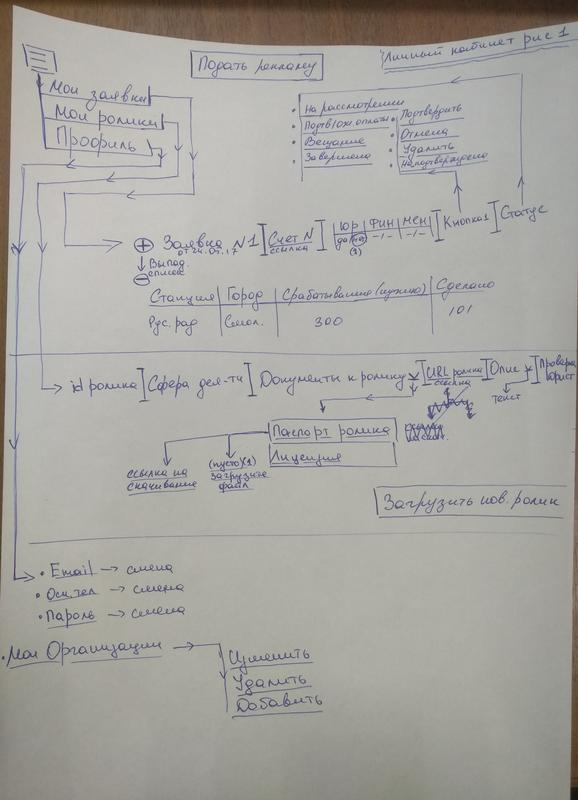 Личный кабинет рис 1
Подать рекламу
Мои заявки
Мои ролики
Профиль
• На рассмотрении
• Подтв/Ож. оплаты
• Вещание
• Завершена
• Подтвердить
• Отмена
• Удалить
• Не подтверждено
Заявка N1
от 24.07.17
Счет N
ссылка
Юр | Фин | Мен
да | но | -/- | -/-
(2)
Кнопка 1
Статус
Выпад.
список
Станция | Город | Срабатывание (нужно) | Сделано
Рус. рад | Смол. | 300 | 101
id ролика
Сфера деят-ти
Документы к ролику
URL ролика
ссылка
Опис
текст
Проверка
юрист
Паспорт ролика
Лицензия
ссылка на
скачивание
(пусто)(1)
загрузите
файл
Загрузить нов. ролик
• Email → смена
• Осн. тел → смена
• Пароль → смена
• Мои Организации →
Изменить
Удалить
Добавить